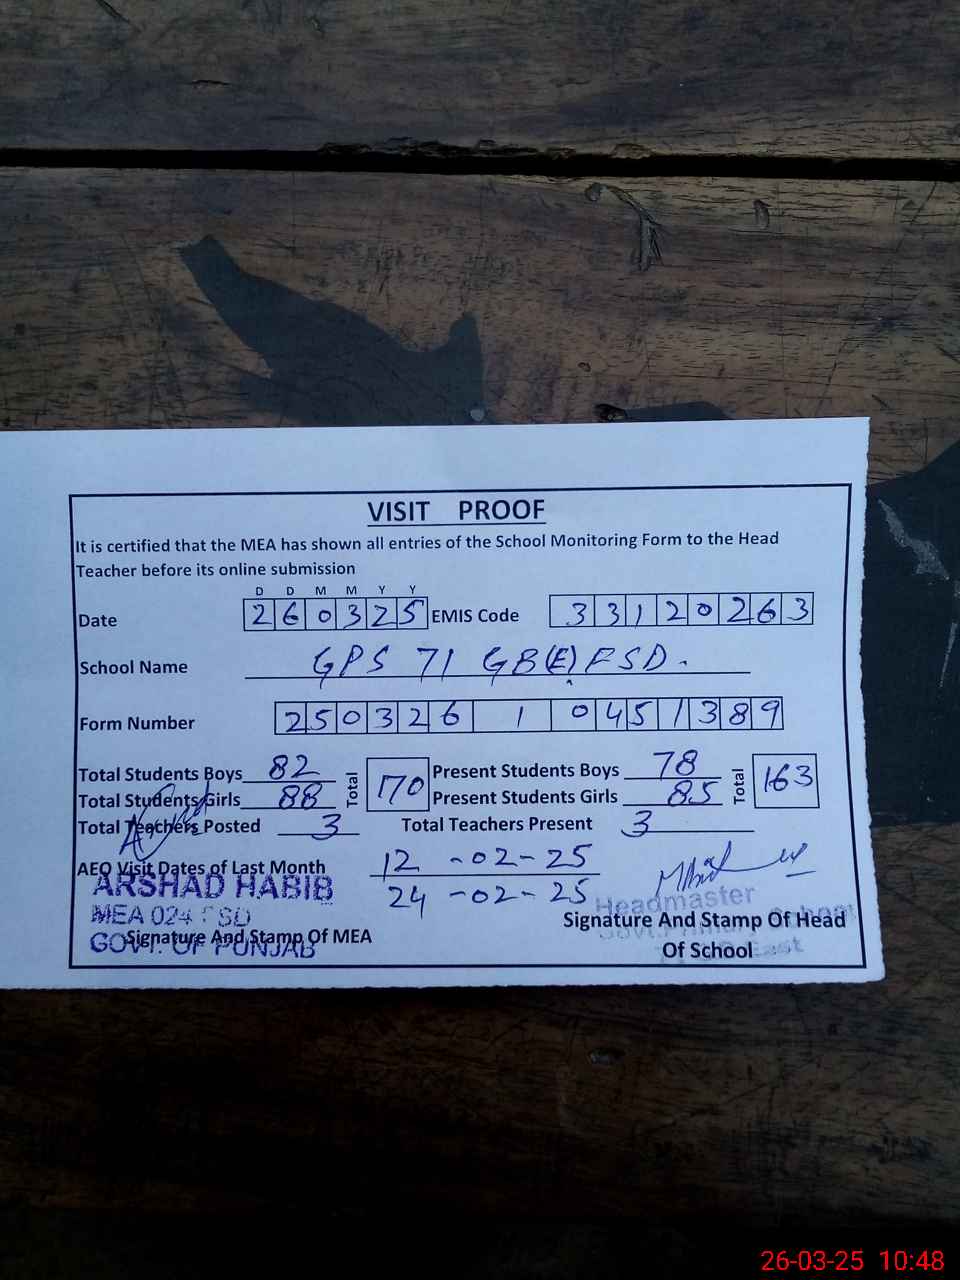 VISIT PROOF
It is certified that the MEA has shown all entries of the School Monitoring Form to the Head
Teacher before its online submission
D D M M Y Y
Date 260325 EMIS Code 33120263
School Name GPS 71 GB(E) FSD.
Form Number 250326 1 0451389
Total Students Boys 82 Total 170 Present Students Boys 78 Total 163
Total Students Girls 88 Present Students Girls 85
Total Teachers Posted 3 Total Teachers Present 3
AEO Visit Dates of Last Month 12-02-25
24-02-25
ARSHAD HABIB
MEA 024 FSD
GOVT. OF PUNJAB
Signature And Stamp Of MEA
Headmaster
Govt. Primary School
East
Signature And Stamp Of Head
Of School
26-03-25 10:48